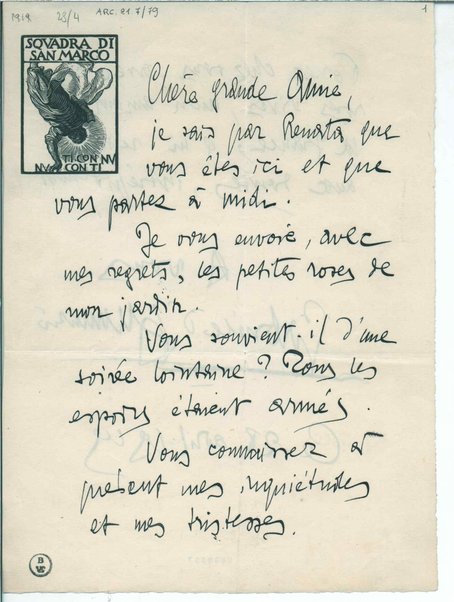 1919
28/4
ARC. 21.7/79
1
SQVADRA DI
SAN MARCO
TI CON NV
NV CON TI
Chère grande Amie,
je sais par Renata que
vous êtes ici et que
vous partez à midi.
Je vous envoie, avec
mes regrets, les petites roses de
mon jardin.
Vous souvient-il d'une
soirée lointaine? Tous les
espoirs étaient armés.
Vous connaissez à
présent mes inquiétudes
et mes tristesses.